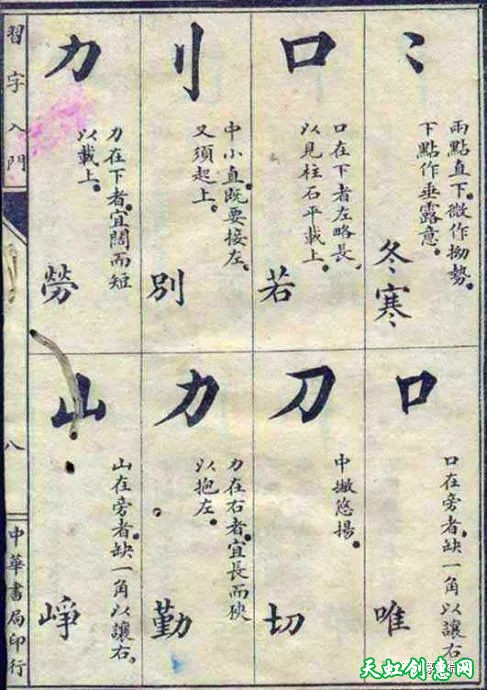 冫
兩點直下。微作拗勢。
下點作垂露意。
冬寒
口
口在下者左略長。
以見柱石平載上。
若
刂
中小直。既要接左。
又須起上。
別
力
力在下者。宜闊而短
以載上。
勞
口
口在旁者。缺一角以讓右。
唯
刀
中撇悠揚。
切
力
力在右者。宜長而狹
以抱左。
勤
山
山在旁者。缺一角以讓右。
崢
習字入門
八
中華書局印行
天虹创意网